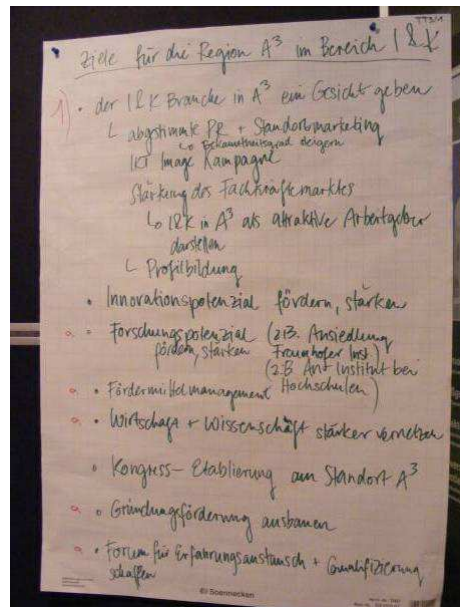 TT3/1
Ziele für die Region A³ im Bereich I & K
1) • der I&K Branche in A³ ein Gesicht geben
└ abgestimmte PR + Standortmarketing
↳ Bekanntheitsgrad steigern
IKT Image Kampagne
Stärkung des Fachkräftemarktes
↳ I&K in A³ als attraktive Arbeitgeber
darstellen
└ Profilbildung
• Innovationspotenzial fördern, stärken
• Forschungspotenzial (z.B. Ansiedlung
fördern, stärken Fraunhofer Inst.)
(z.B An Institut bei
• Fördermittelmanagement Hochschulen)
• Wirtschaft + Wissenschaft stärker vernetzen
• Kongress-Etablierung am Standort A³
• Gründungsförderung ausbauen
• Forum für Erfahrungsaustausch + Qualifizierung
schaffen
Soennecken